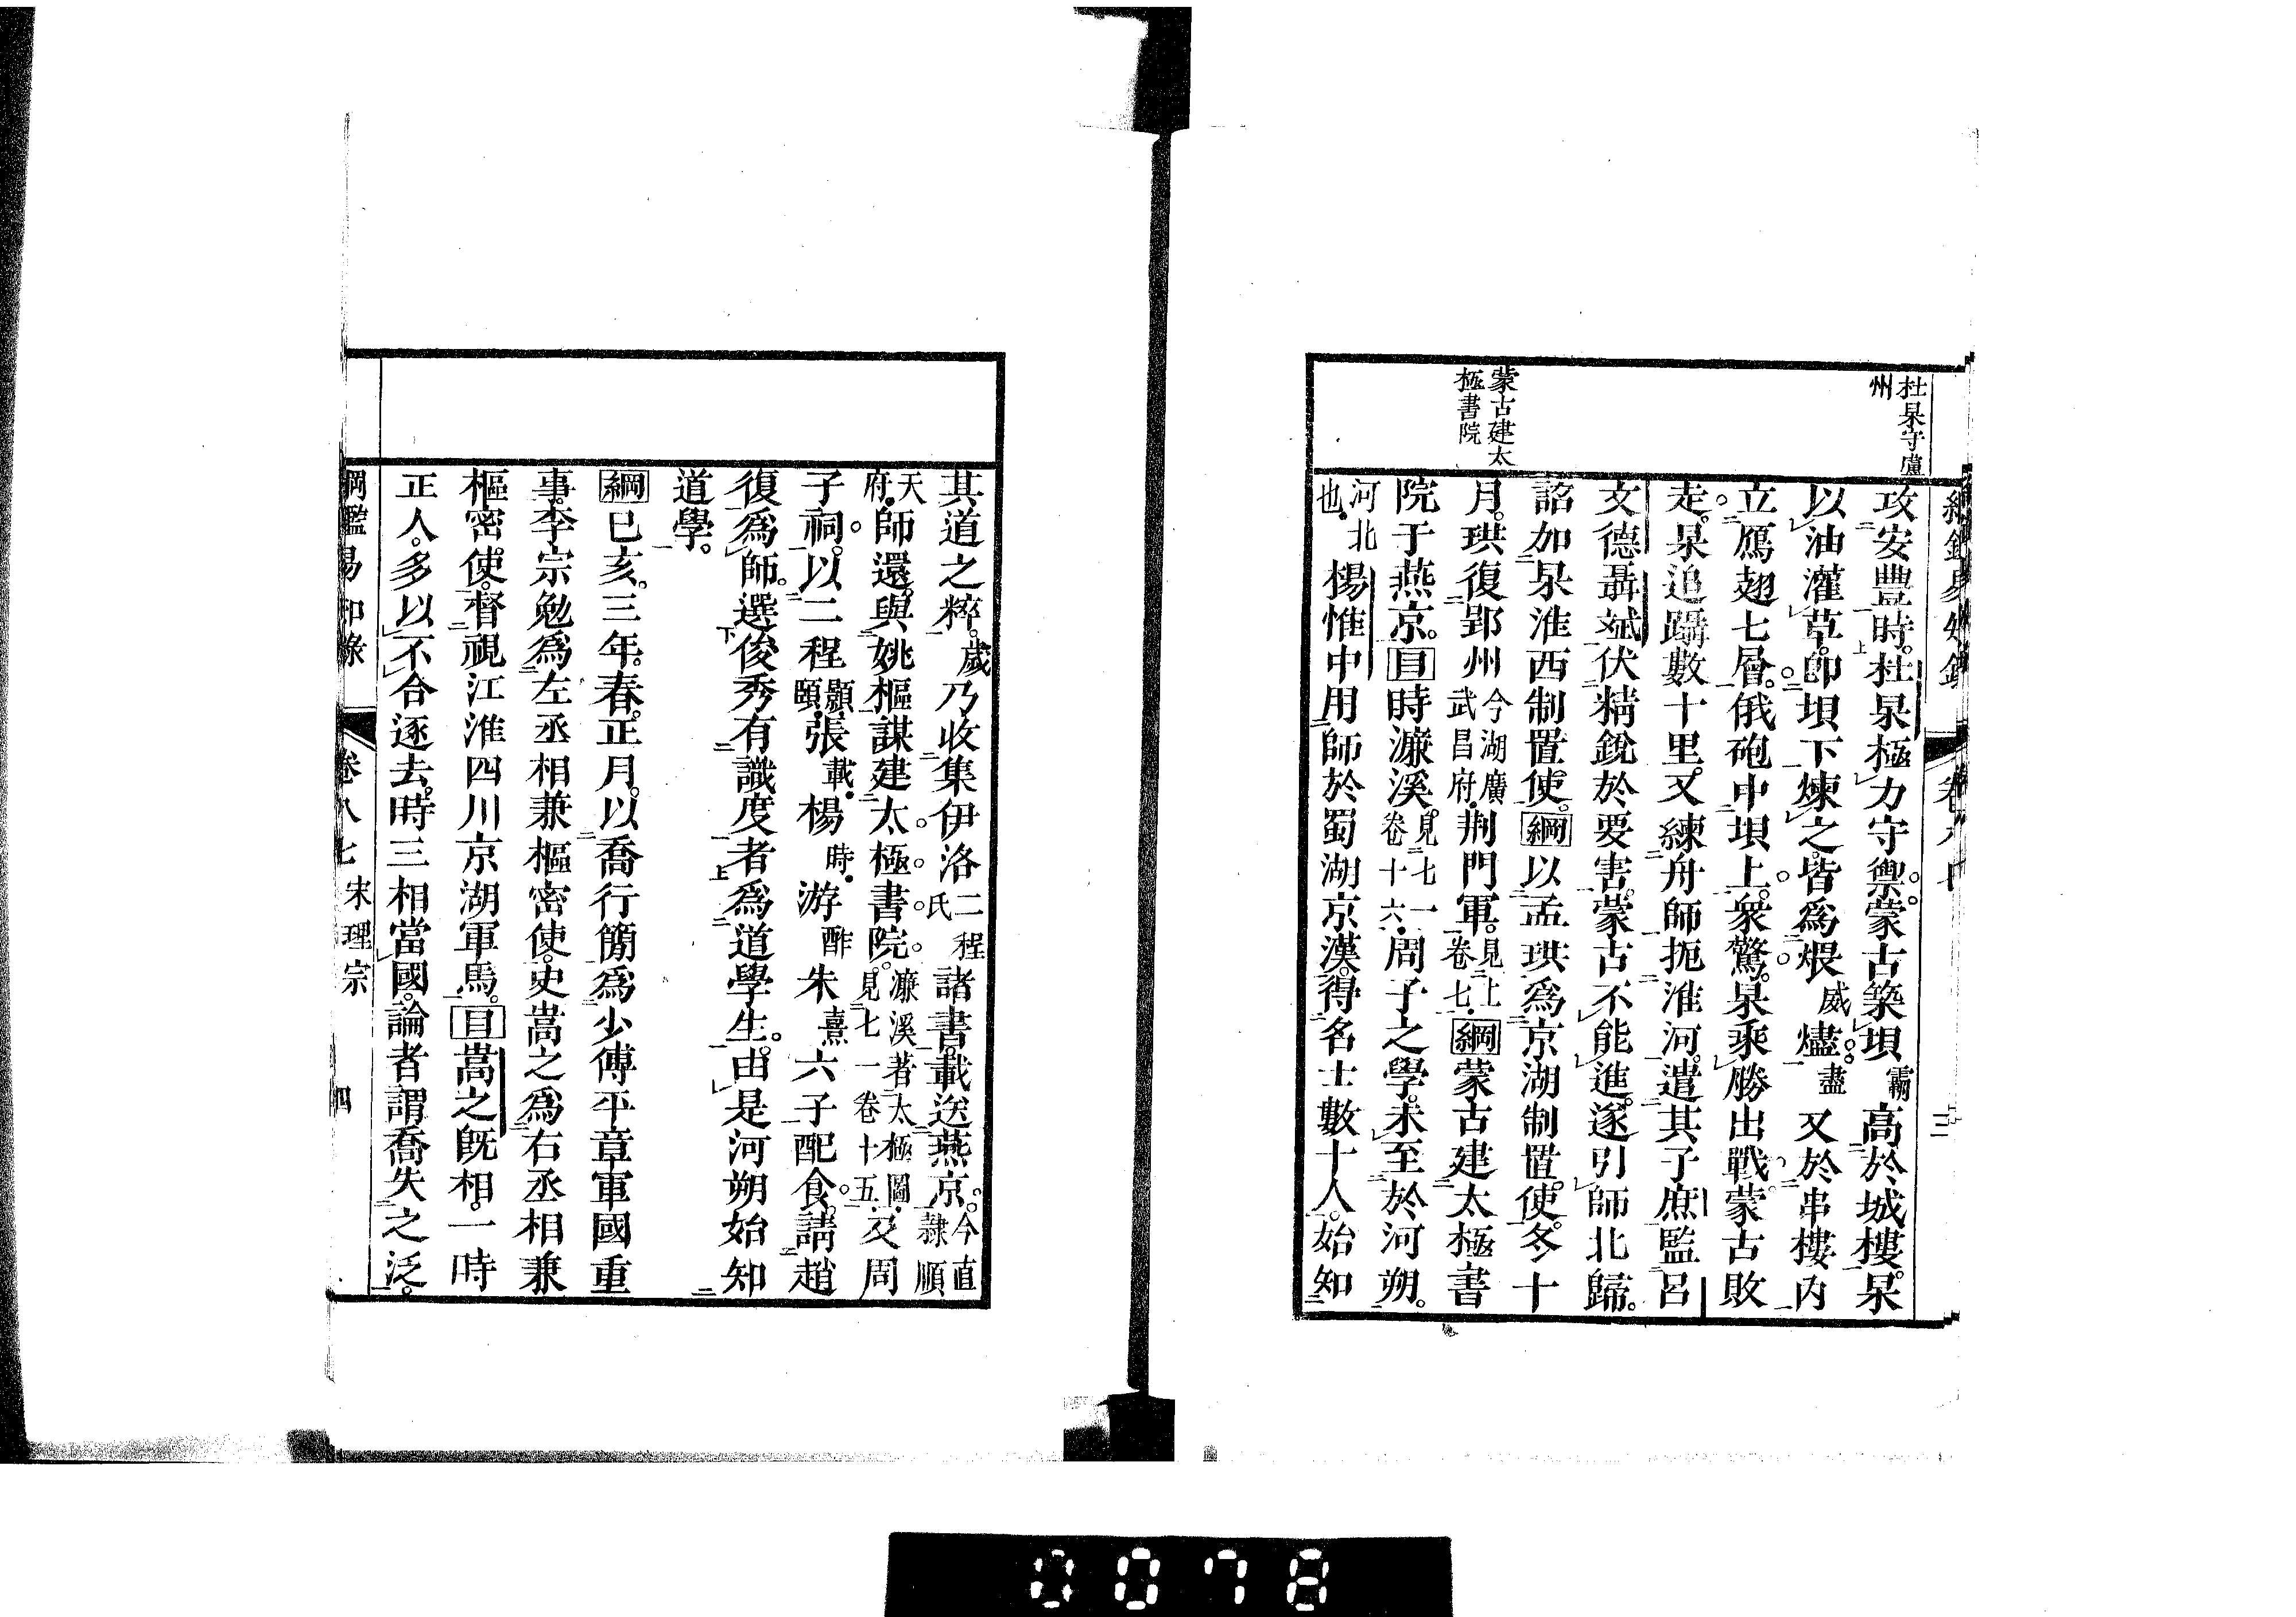 杜杲守廬
州
蒙古建太
極書院
三
攻安豐時。杜杲極力守禦。蒙古築壩霸高於城樓。杲
以油灌草。卽壩下煉之。皆爲煨威燼。盡又於串樓內
立鴈翅七層。俄砲中壩上。衆驚。杲乘勝出戰。蒙古敗
走。杲追躡數十里。又練舟師扼淮河。遣其子庶監呂
文德聶斌伏精銳於要害。蒙古不能進。遂引師北歸。
詔加杲淮西制置使。綱以孟珙爲京湖制置使。冬十
月。珙復郢州今湖廣武昌府。荆門軍。見上卷七。綱蒙古建太極書
院于燕京。目時濂溪。見七一卷十六。周子之學。未至於河朔。
河北也。楊惟中用師於蜀湖京漢。得名士數十人。始知
其道之粹。歲乃收集伊洛二程氏諸書。載送燕京。今直隸順
天府。師還。與姚樞謀建太極書院。濂溪著太極圖。見七一卷十五。及周
子祠。以二程顥頤。張載。楊時。游酢朱熹六子配食。請趙
復爲師。選俊秀有識度者爲道學生。由是河朔始知
道學。
綱己亥。三年。春。正月。以喬行簡爲少傅平章軍國重
事。李宗勉爲左丞相兼樞密使。史嵩之爲右丞相兼
樞密使。督視江淮四川京湖軍馬。目嵩之旣相。一時
正人。多以不合逐去。時三相當國。論者謂喬失之泛。
綱鑑易知錄 卷八七 宋理宗 四
0078